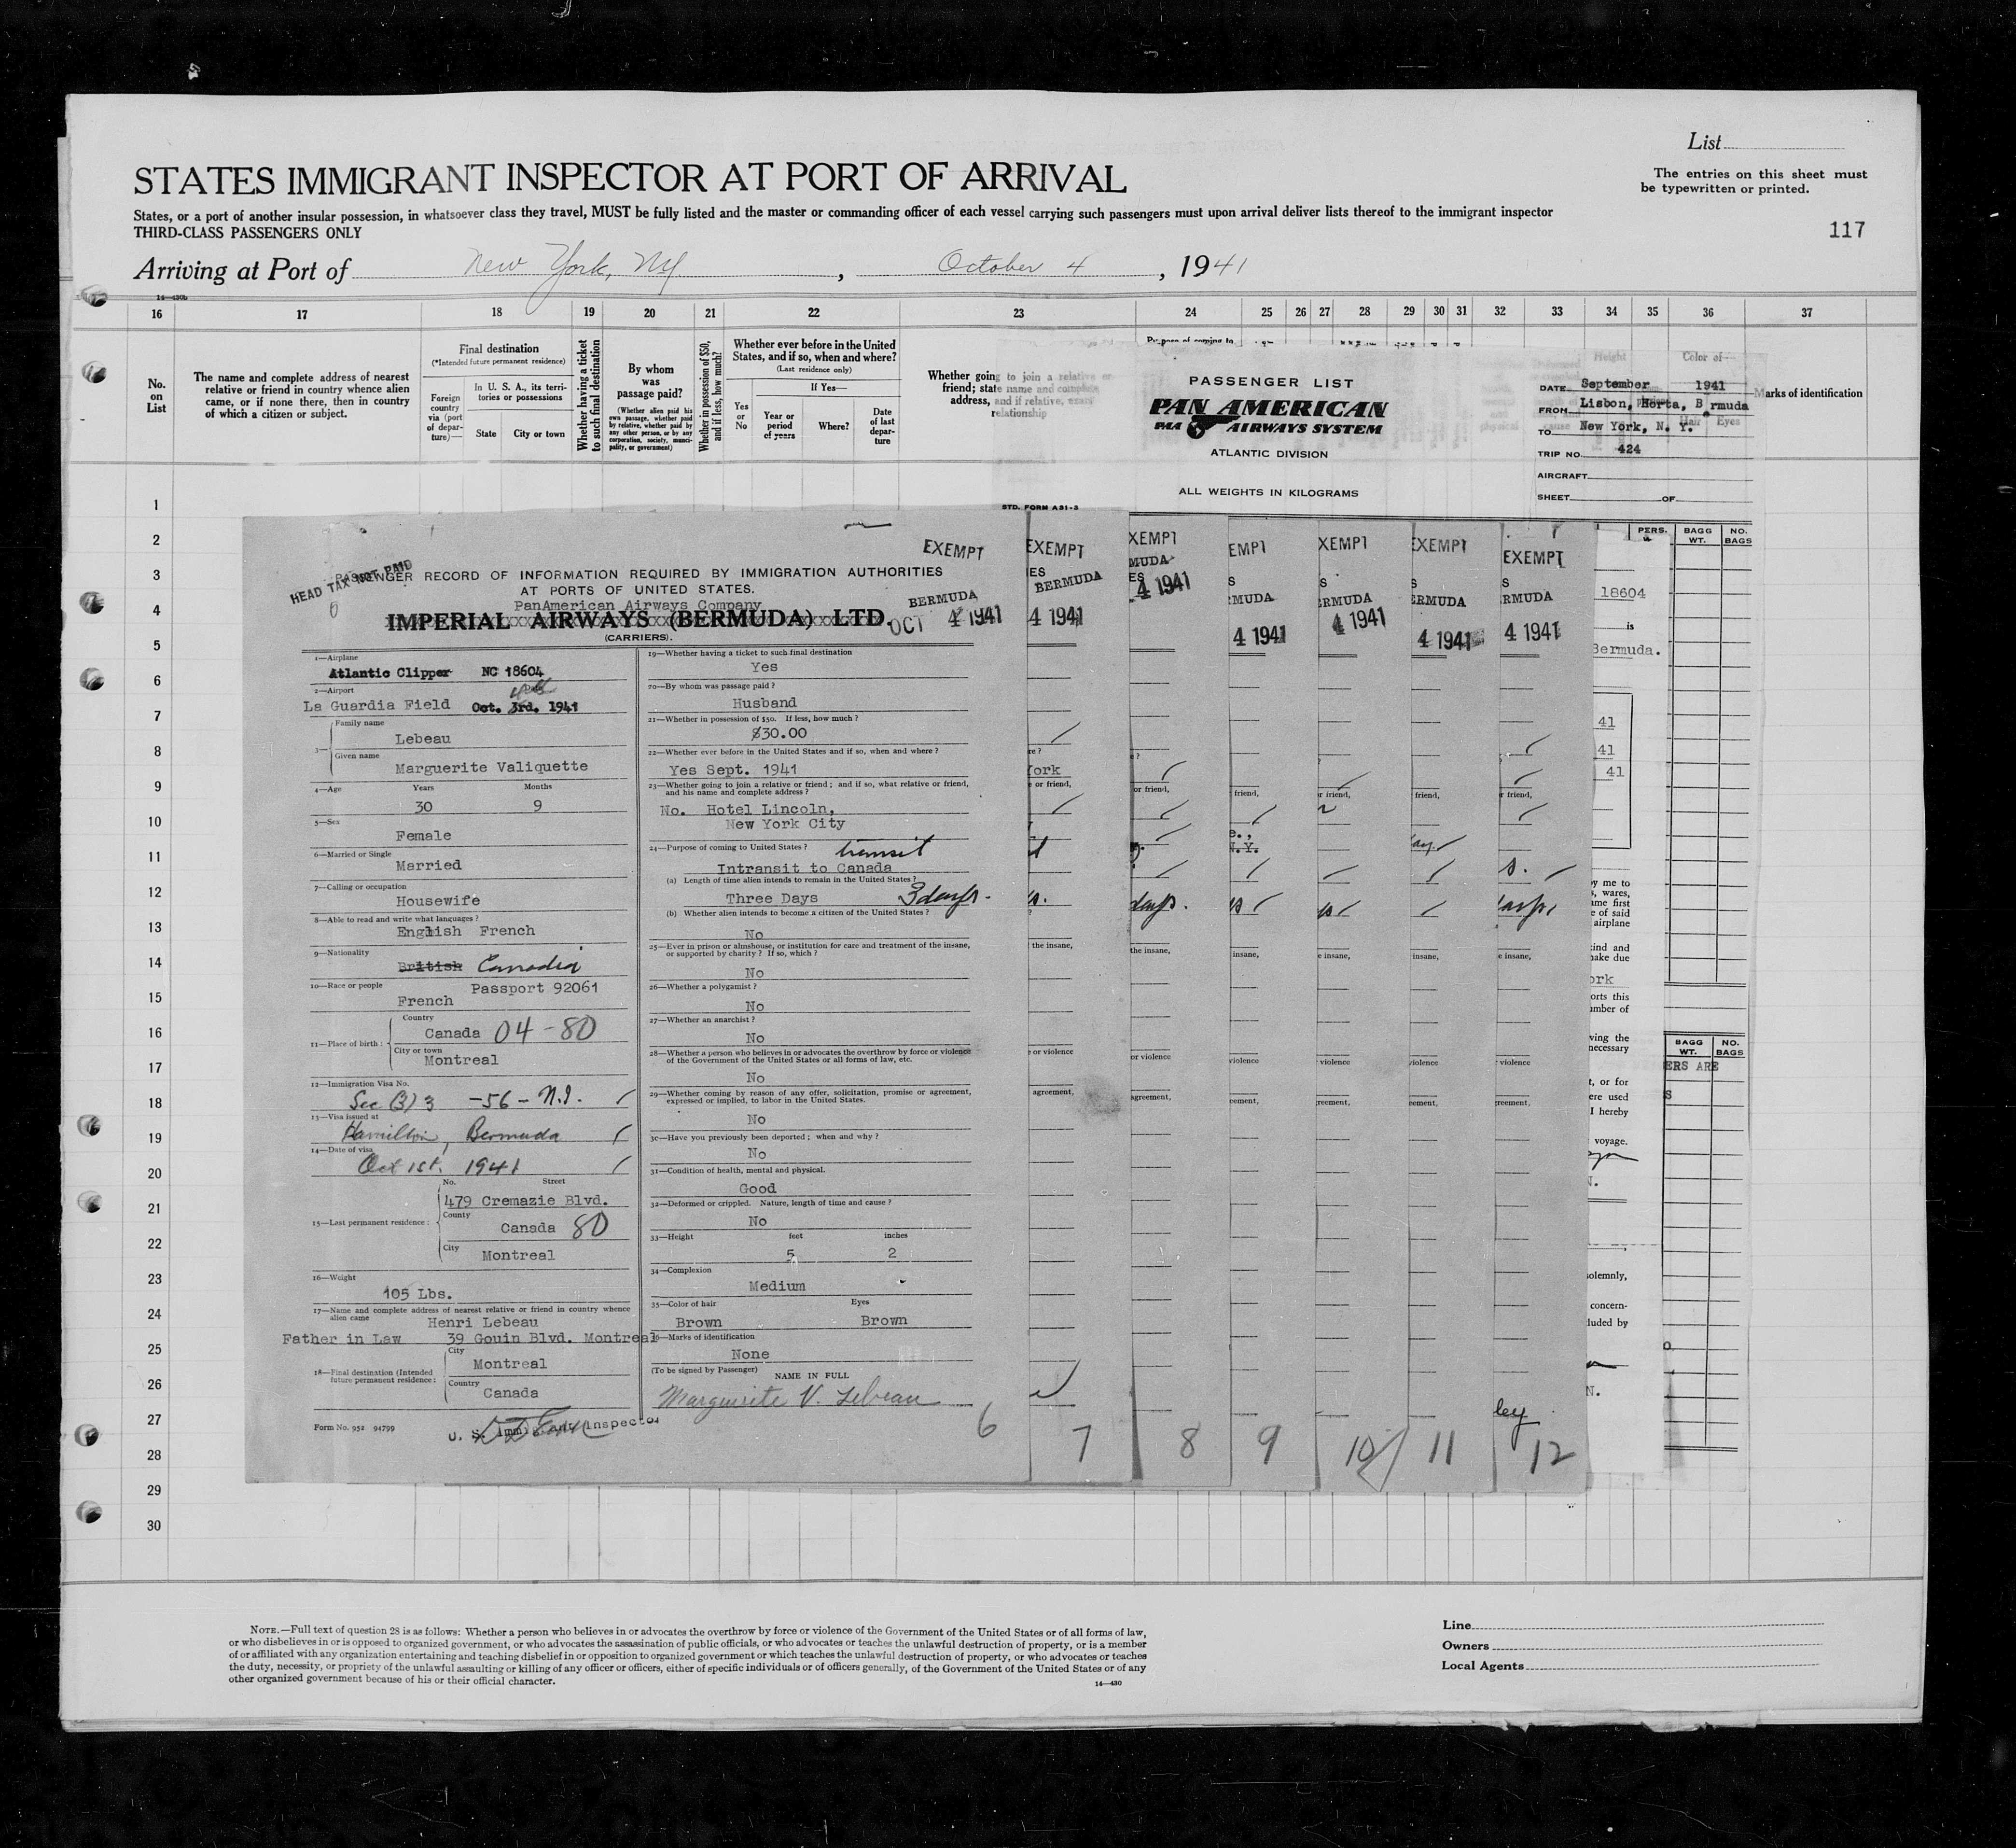 List
The entries on this sheet must
be typewritten or printed.
STATES IMMIGRANT INSPECTOR AT PORT OF ARRIVAL
States, or a port of another insular possession, in whatsoever class they travel, MUST be fully listed and the master or commanding officer of each vessel carrying such passengers must upon arrival deliver lists thereof to the immigrant inspector
THIRD-CLASS PASSENGERS ONLY
117
Arriving at Port of New York, NY, October 4, 1941
14—430b
16 17 18 19 20 21 22 23 24 25 26 27 28 29 30 31 32 33 34 35 36 37
No.
on
List
The name and complete address of nearest
relative or friend in country whence alien
came, or if none there, then in country
of which a citizen or subject.
Final destination
(*Intended future permanent residence)
Foreign
country
via (port
of depar-
ture)—
In U. S. A., its terri-
tories or possessions
State City or town
Whether having a ticket
to such final destination
By whom
was
passage paid?
(Whether alien paid his
own passage, whether paid
by relative, whether paid by
any other person, or by any
corporation, society, munici-
pality, or government)
Whether in possession of $50,
and if less, how much?
Whether ever before in the United
States, and if so, when and where?
(Last residence only)
If Yes—
Yes
or
No
Year or
period
of years
Where?
Date
of last
depar-
ture
Whether going to join a relative or
friend; state name and complete
address, and if relative, exact
relationship
Purpose of coming to
Height
Color of—
Hair Eyes
Marks of identification
PASSENGER LIST
PAN AMERICAN
PAA AIRWAYS SYSTEM
ATLANTIC DIVISION
ALL WEIGHTS IN KILOGRAMS
DATE September 1941
FROM Lisbon, Horta, Bermuda
TO New York, N. Y.
TRIP NO. 424
AIRCRAFT
SHEET OF
STD. FORM A31-3
PERS. BAGG WT. NO. BAGS
1
2
3
4
5
6
7
8
9
10
11
12
13
14
15
16
17
18
19
20
21
22
23
24
25
26
27
28
29
30
HEAD TAX NOT PAID
EXEMPT
PASSENGER RECORD OF INFORMATION REQUIRED BY IMMIGRATION AUTHORITIES
AT PORTS OF UNITED STATES.
PanAmerican Airways Company
IMPERIAL AIRWAYS (BERMUDA) LTD.
(CARRIERS).
BERMUDA
OCT 4 1941
1—Airplane
Atlantic Clipper NC 18604
2—Airport
4th
La Guardia Field Oct. 3rd. 1941
3— Family name
Lebeau
Given name
Marguerite Valiquette
4—Age Years Months
30 9
5—Sex
Female
6—Married or Single
Married
7—Calling or occupation
Housewife
8—Able to read and write what languages?
English French
9—Nationality
British Canadian
10—Race or people Passport 92061
French
11—Place of birth:
Country
Canada 04-80
City or town
Montreal
12—Immigration Visa No.
Sec (3) 3 -56- N.I.
13—Visa issued at
Hamilton, Bermuda
14—Date of visa
Oct 1st. 1941
15—Last permanent residence:
No. Street
479 Cremazie Blvd.
County
Canada 80
City
Montreal
16—Weight
105 Lbs.
17—Name and complete address of nearest relative or friend in country whence
alien came
Henri Lebeau
Father in Law 39 Gouin Blvd. Montreal
18—Final destination (Intended
future permanent residence:
City
Montreal
Country
Canada
Form No. 952 94799
U. S. Immigrant Inspector
19—Whether having a ticket to such final destination
Yes
20—By whom was passage paid?
Husband
21—Whether in possession of $50. If less, how much?
$30.00
22—Whether ever before in the United States and if so, when and where?
Yes Sept. 1941
23—Whether going to join a relative or friend; and if so, what relative or friend,
and his name and complete address?
No. Hotel Lincoln,
New York City
24—Purpose of coming to United States? transit
Intransit to Canada
(a) Length of time alien intends to remain in the United States?
Three Days 3 days.
(b) Whether alien intends to become a citizen of the United States?
No
25—Ever in prison or almshouse, or institution for care and treatment of the insane,
or supported by charity? If so, which?
No
26—Whether a polygamist?
No
27—Whether an anarchist?
No
28—Whether a person who believes in or advocates the overthrow by force or violence
of the Government of the United States or all forms of law, etc.
No
29—Whether coming by reason of any offer, solicitation, promise or agreement,
expressed or implied, to labor in the United States.
No
30—Have you previously been deported; when and why?
No
31—Condition of health, mental and physical.
Good
32—Deformed or crippled. Nature, length of time and cause?
No
33—Height feet inches
5 2
34—Complexion
Medium
35—Color of hair Eyes
Brown Brown
36—Marks of identification
None
(To be signed by Passenger)
NAME IN FULL
Marguerite V. Lebeau
6 7 8 9 10 11 12
EXEMPT XEMPT EMPT XEMPT EXEMPT EXEMPT
BERMUDA MUDA RMUDA ERMUDA ERMUDA RMUDA
4 1941 4 1941 4 1941 4 1941 4 1941 4 1941
18604
is
Bermuda.
41
41
41
NOTE.—Full text of question 28 is as follows: Whether a person who believes in or advocates the overthrow by force or violence of the Government of the United States or of all forms of law,
or who disbelieves in or is opposed to organized government, or who advocates the assassination of public officials, or who advocates or teaches the unlawful destruction of property, or is a member
of or affiliated with any organization entertaining and teaching disbelief in or opposition to organized government or which teaches the unlawful destruction of property, or who advocates or teaches
the duty, necessity, or propriety of the unlawful assaulting or killing of any officer or officers, either of specific individuals or of officers generally, of the Government of the United States or of any
other organized government because of his or their official character.
14—430
Line
Owners
Local Agents